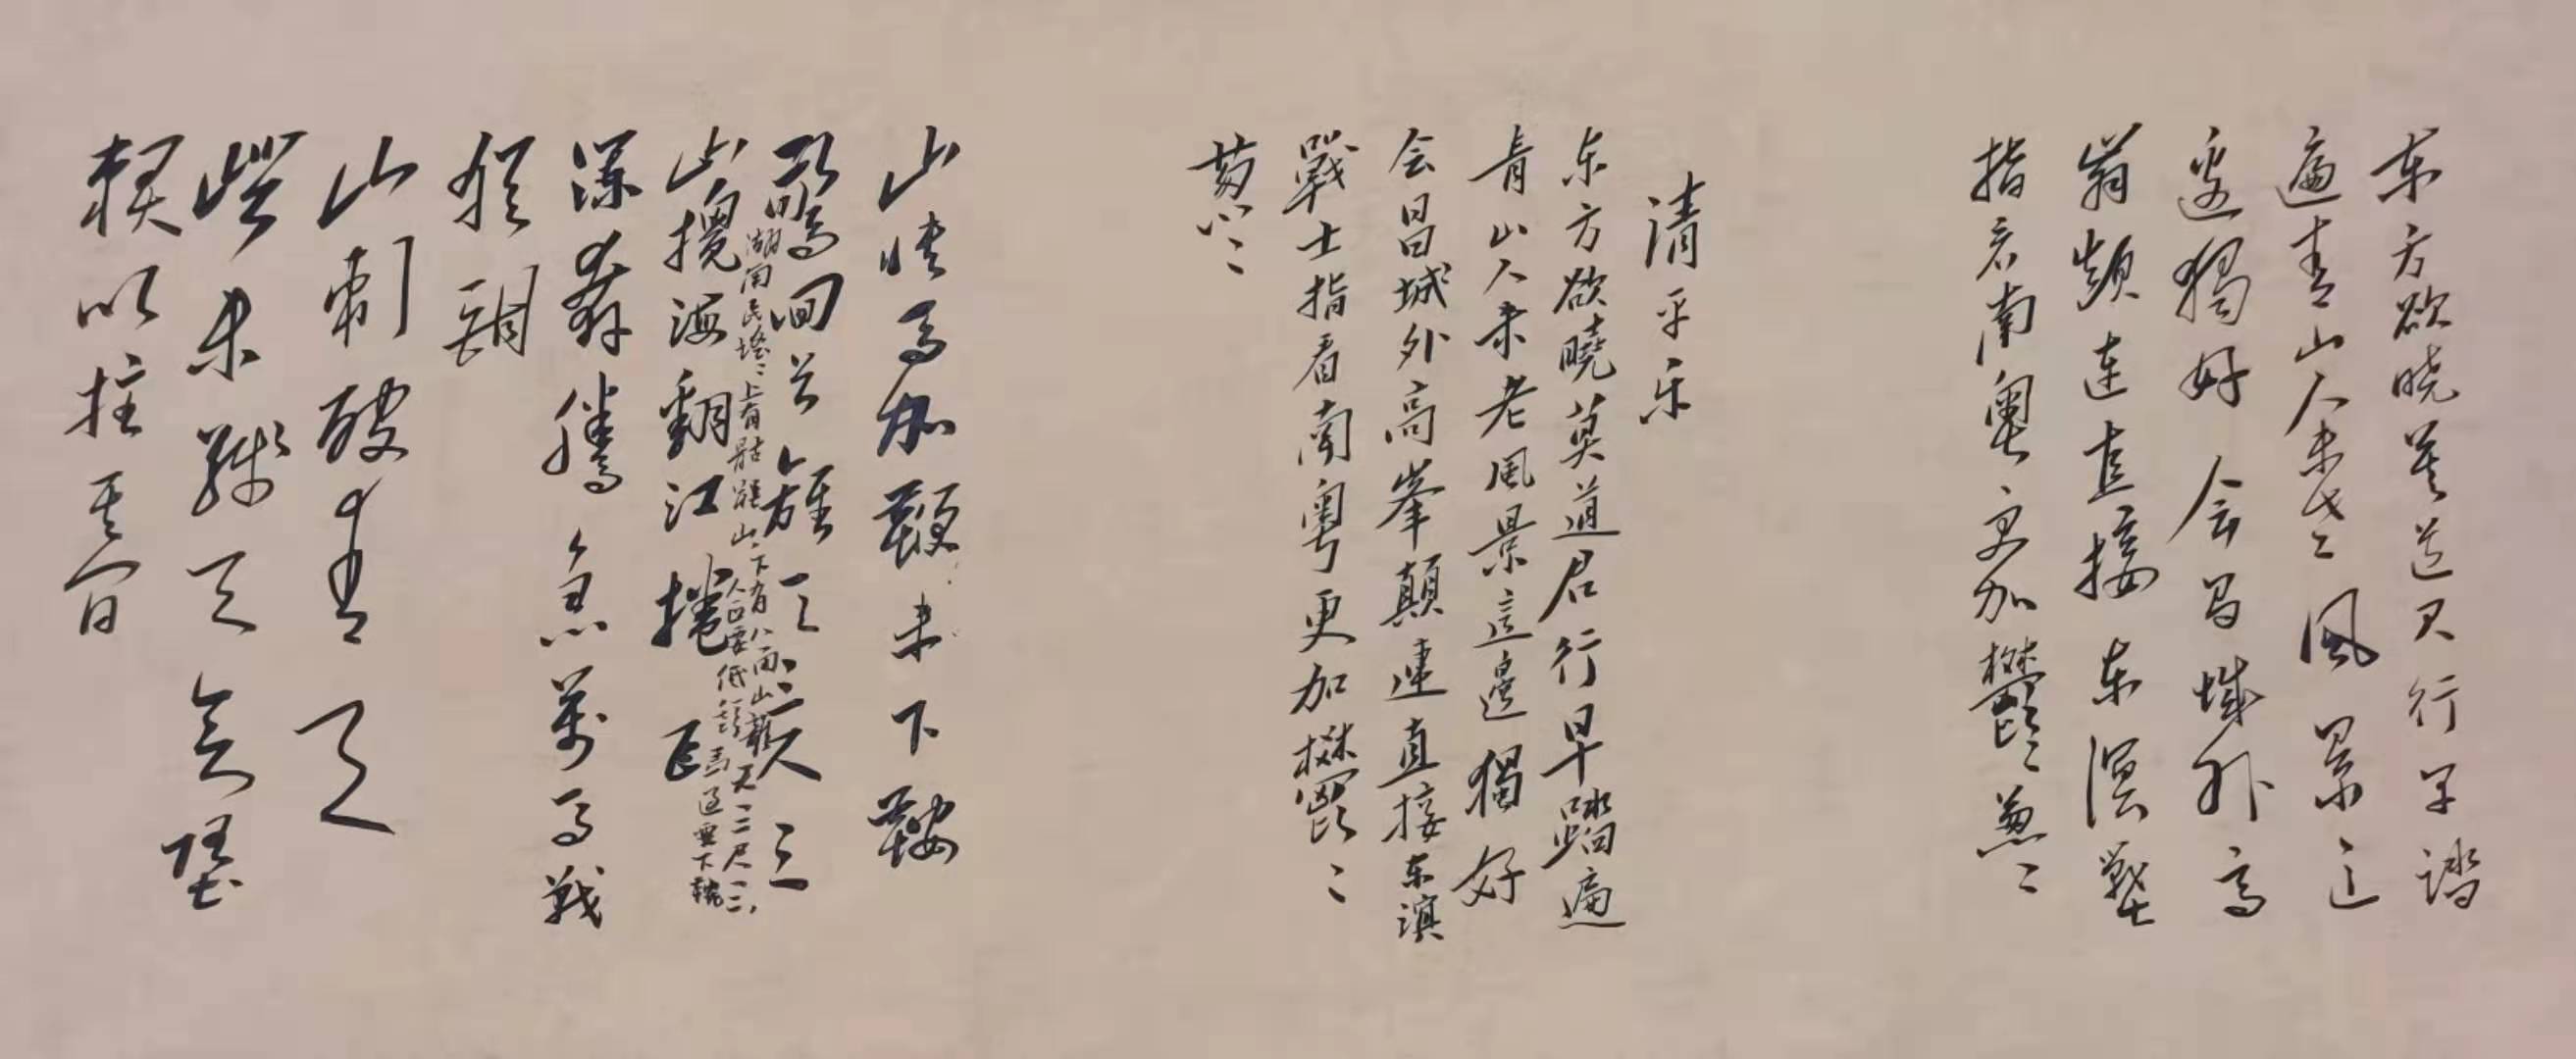 东方欲晓莫道君行早踏
遍青山人未老〻風景这
边獨好会昌城外高
峯颠连直接东溟戰士
指看南粤更加欝〻葱〻
清平乐
东方欲曉莫道君行早踏遍
青山人未老風景這邊獨好
会昌城外高峯顛連直接东溟
戰士指看南粤更加欝〻
葱〻
山快马加鞭未下鞍
驚回首離天三尺三
湖南民謠：上有骷髏山，下有八面山，離天三尺三，
人过要低頭，马过要下鞍
山攪海翻江捲巨
瀾奔騰急萬马戰
猶酣
山刺破青天
锷未残天欲堕
賴以拄其间